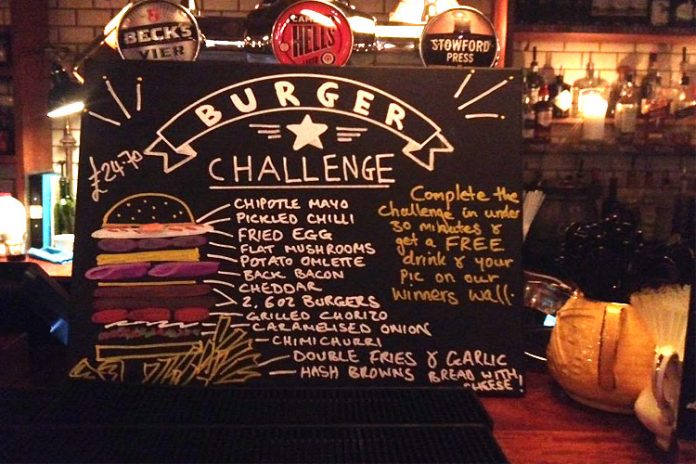 BECK'S
VIER
CAMDEN
HELLS
STOWFORD
PRESS
BURGER
CHALLENGE
£24.70
CHIPOTLE MAYO
PICKLED CHILLI
FRIED EGG
FLAT MUSHROOMS
POTATO OMLETTE
BACK BACON
CHEDDAR
2, 6OZ BURGERS
GRILLED CHORIZO
CARAMELISED ONION
CHIMICHURRI
DOUBLE FRIES & GARLIC
HASH BROWNS BREAD WITH
CHEESE!
Complete the
challenge in under
30 minutes &
get a FREE
drink & your
pic on our
winners wall.